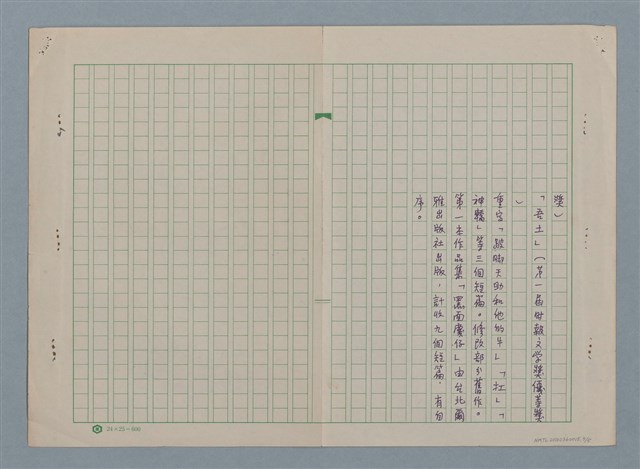 獎）
「吾土」（第一屆時報文学獎優等獎
）
重宝「跛脚天助和他的牛」「扛」「
神轎」等三個短篇。修改部分舊作。
第一本作品集「黑面慶仔」由台北爾
雅出版社出版，計收九個短篇，有自
序。
24×25=600